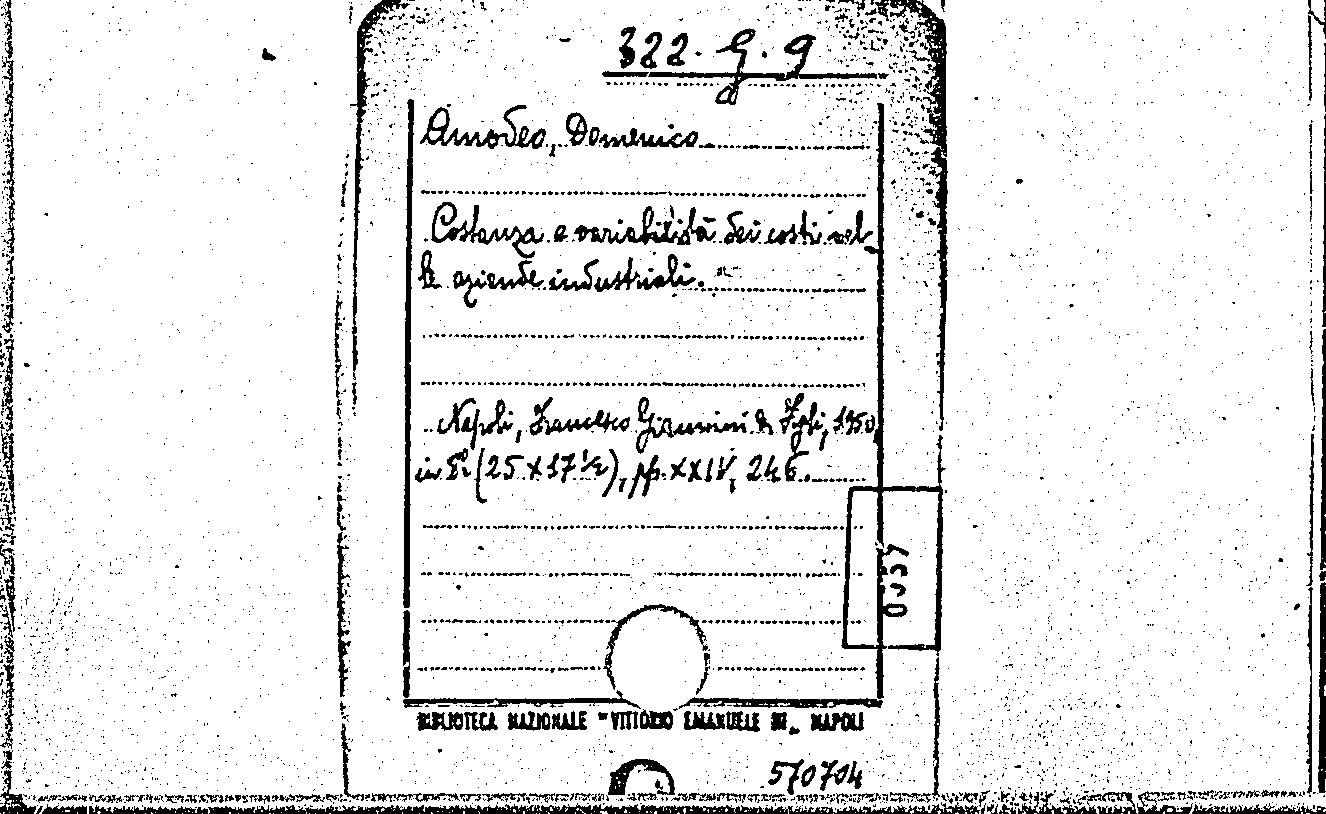 322. G. 9
Amodeo, Domenico.
Costanza e variabilità dei costi nel-
le aziende industriali.
Napoli, Francesco Giannini & Figli, 1950,
in 8º (25 x 17 ½), pp. XXIV, 246.
BIBLIOTECA NAZIONALE "VITTORIO EMANUELE III" NAPOLI
570704